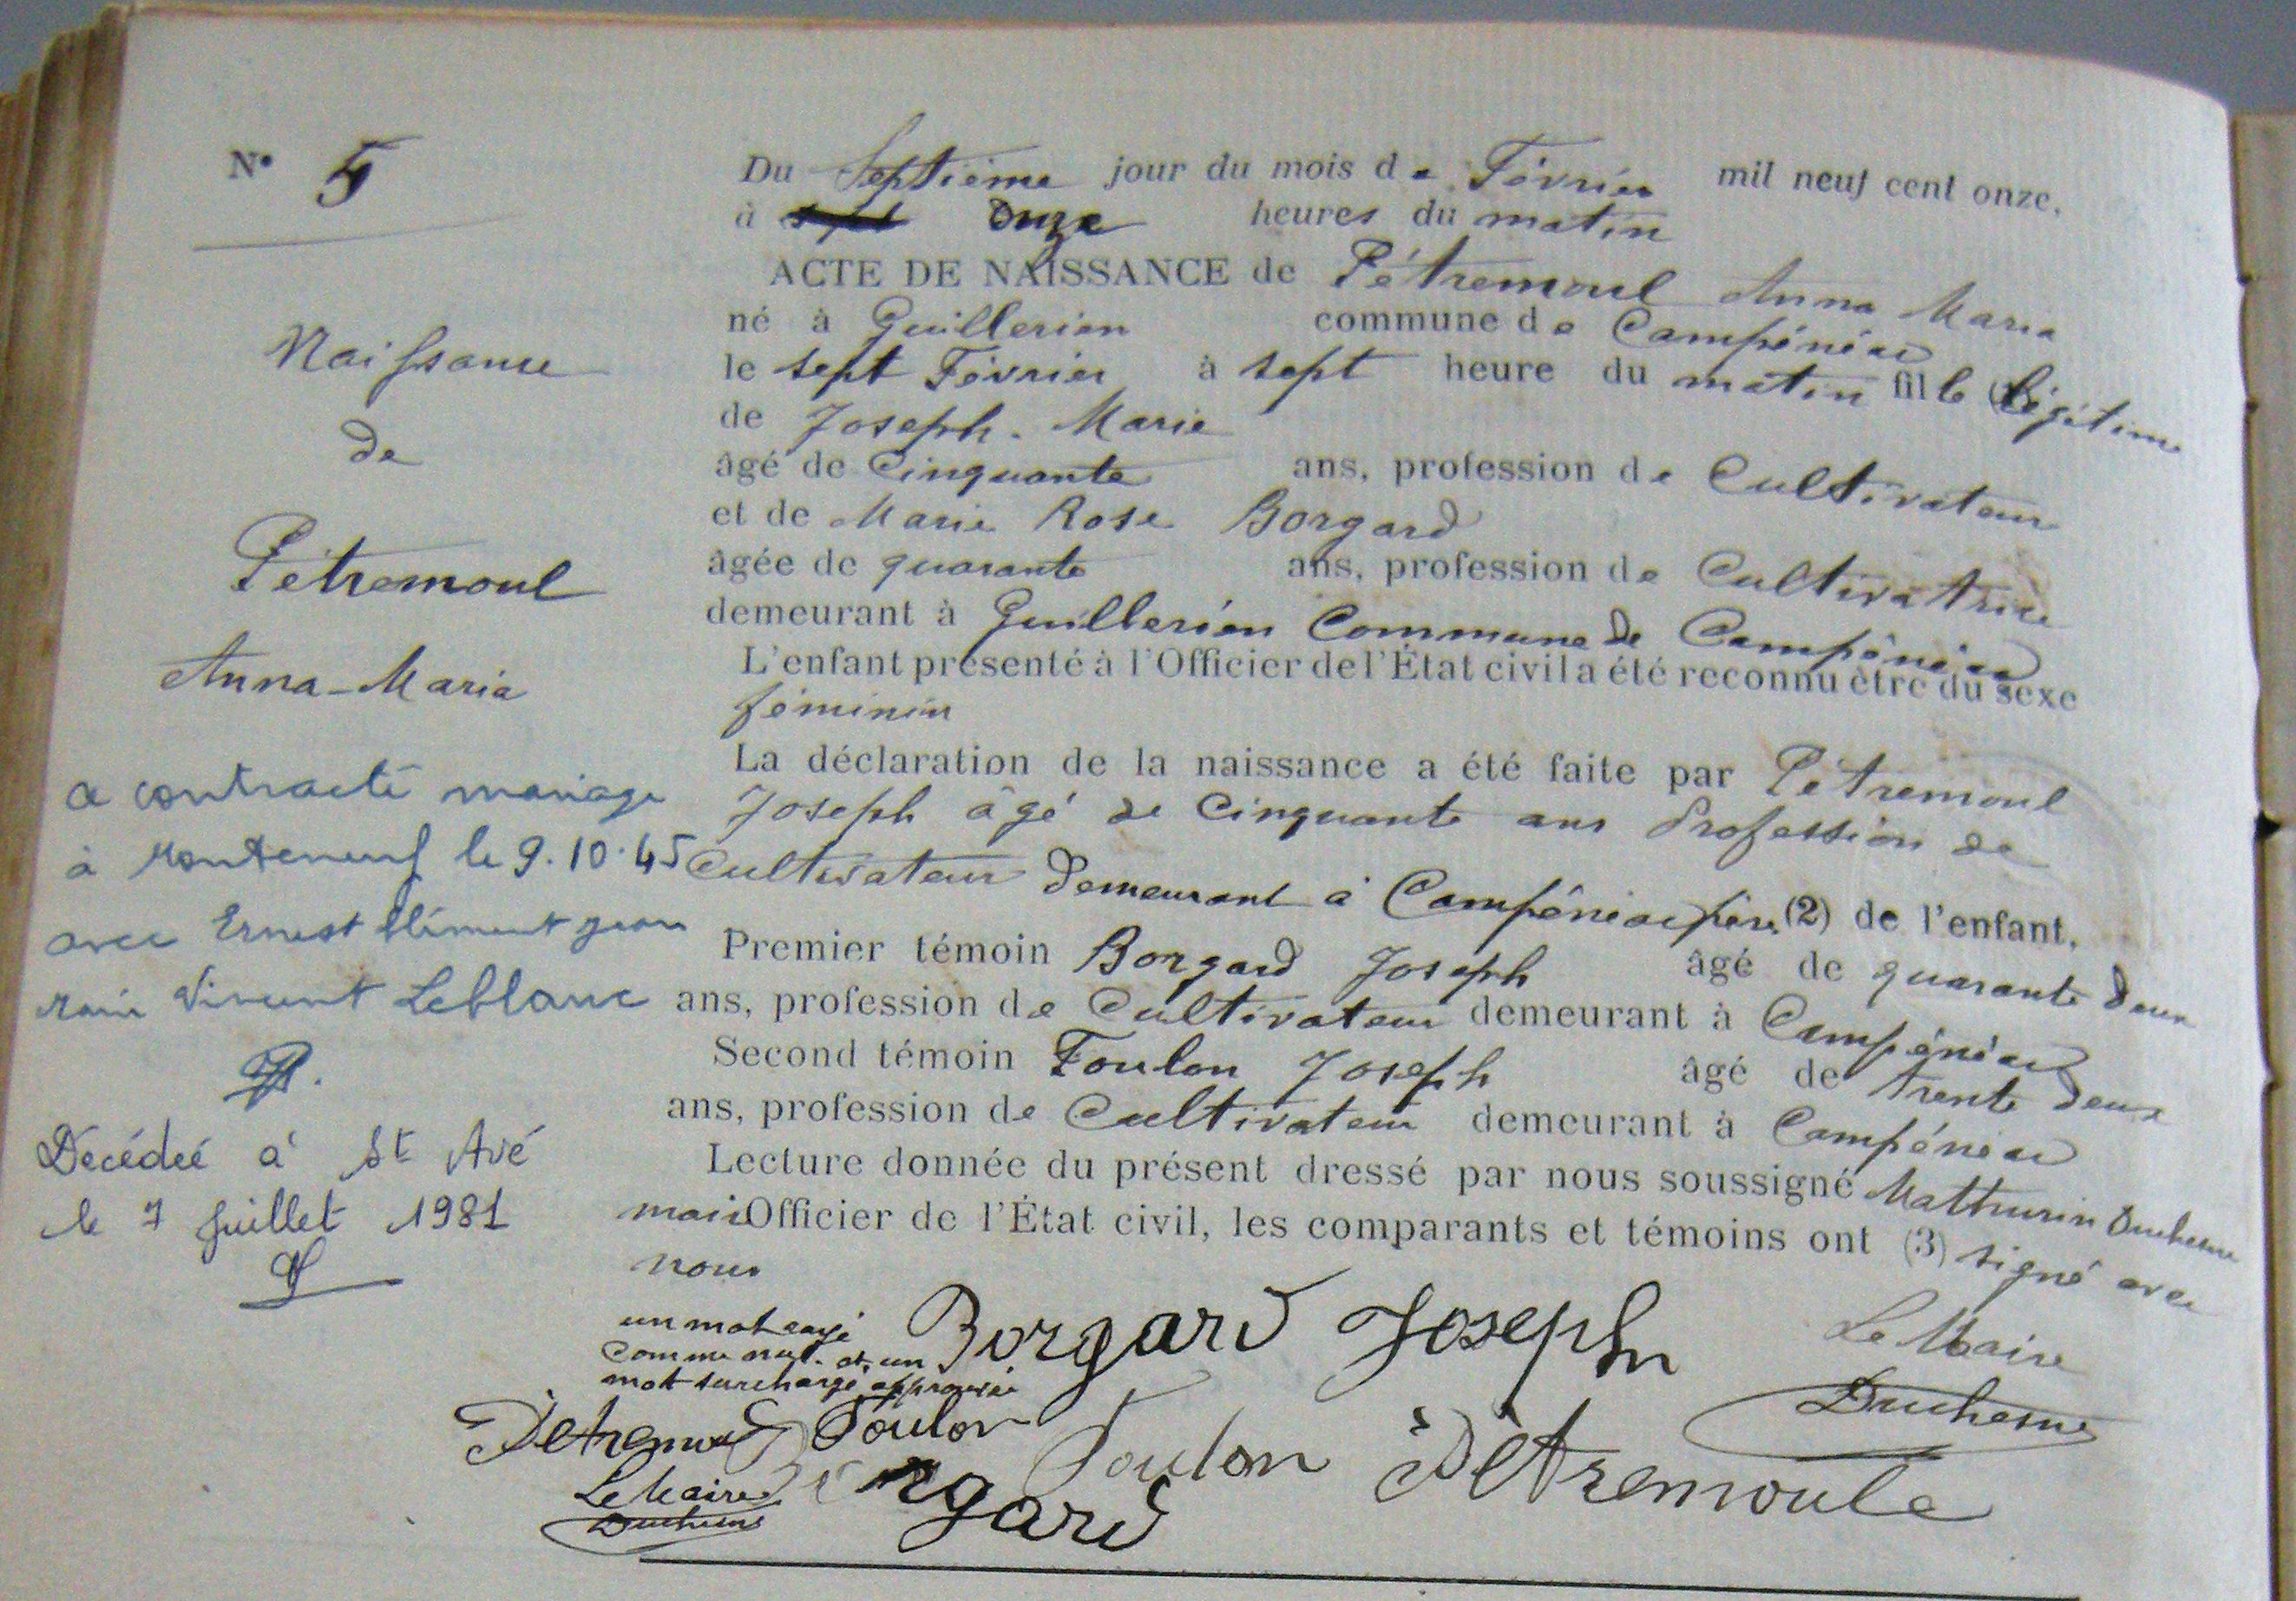 N° 5
Naissance
de
Pétremoul
Anna-Maria
a contracté mariage
à Monteneuf le 9.10.45
avec Ernest Clément Jean
Marie Vincent Leblanc
Décédée à St Avé
le 7 Juillet 1981
Du Septième jour du mois de Février mil neuf cent onze,
à sept onze heures du matin
ACTE DE NAISSANCE de Pétremoul Anna Maria
né à Guillerien commune de Campénéac
le sept Février à sept heure du matin fille légitime
de Joseph. Marie
âgé de Cinquante ans, profession de Cultivateur
et de Marie Rose Borgard
âgée de quarante ans, profession de Cultivatrice
demeurant à Guillerien Commune de Campénéac
L'enfant présenté à l'Officier de l'État civil a été reconnu être du sexe
féminin
La déclaration de la naissance a été faite par Pétremoul
Joseph âgé de Cinquante ans Profession de
Cultivateur demeurant à Campénéac père (2) de l'enfant,
Premier témoin Borgard Joseph âgé de quarante deux
ans, profession de Cultivateur demeurant à Campénéac
Second témoin Foulon Joseph âgé de trente deux
ans, profession de Cultivateur demeurant à Campénéac
Lecture donnée du présent dressé par nous soussigné Mathurin Duchesne
maire Officier de l'État civil, les comparants et témoins ont (3) signé avec
nous
un mot rayé
comme nul. et un
mot surchargé approuvés
Borgard Joseph
Le Maire
Duchesne
Pétremoul Foulon
Foulon Pètremoule
Le Maire
Duchesne
Borgard